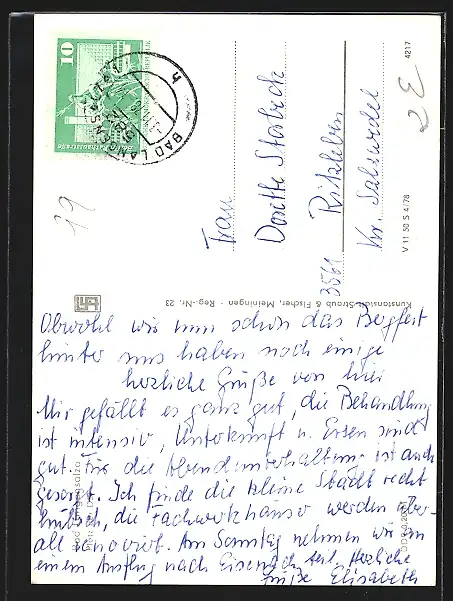 10
BAD LANGENSALZA
Frau
Doritta
Ritzleben
3561
Kr. Salzwedel
V 11 50 S 4/78
4217
2 E
19
Kunstanstalt Straub & Fischer, Meiningen - Reg.-Nr. 23
Obwohl wir nun schon das Bergfest
hinter uns haben noch einige
herzliche Grüße von hier
Mir gefällt es ganz gut, die Behandlung
ist intensiv, Unterkunft u. Essen sind
gut. Für die Abendunterhaltung ist auch
gesorgt. Ich finde die kleine Stadt recht
hübsch, die Fachwerkhäuser werden über-
all renoviert. Am Sonntag nehmen wir an
einem Ausflug nach Eisenach teil. Herzliche
Grüße Elisabeth
Bad Langensalza